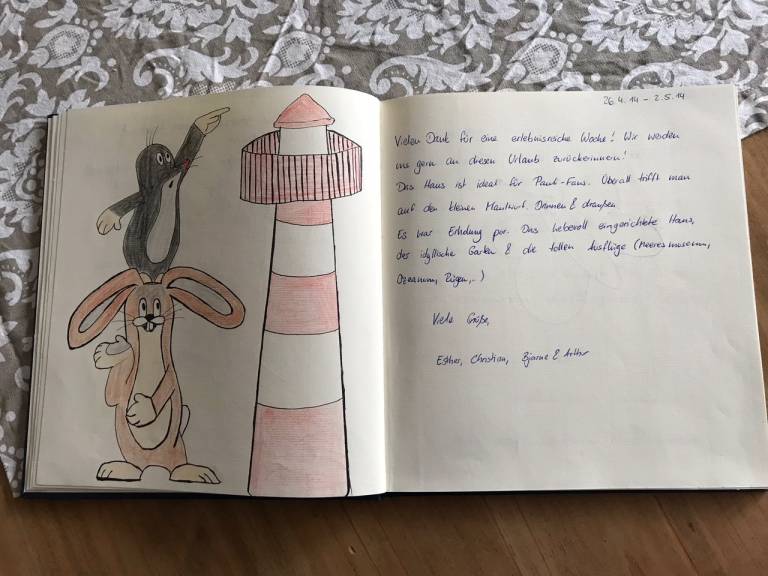 26.4.14 – 2.5.14
Vielen Dank für eine erlebnisreiche Woche! Wir werden
uns gern an diesen Urlaub zurückerinnern!
Das Haus ist ideal für Pauli-Fans. Überall trifft man
auf den kleinen Maulwurf. Drinnen & draußen
Es war Erholung pur. Das liebevoll eingerichtete Haus,
der idyllische Garten & die tollen Ausflüge (Meeresmuseum,
Ozeaneum, Rügen,..)
Viele Grüße,
Esther, Christian, Bjarne & Arthur